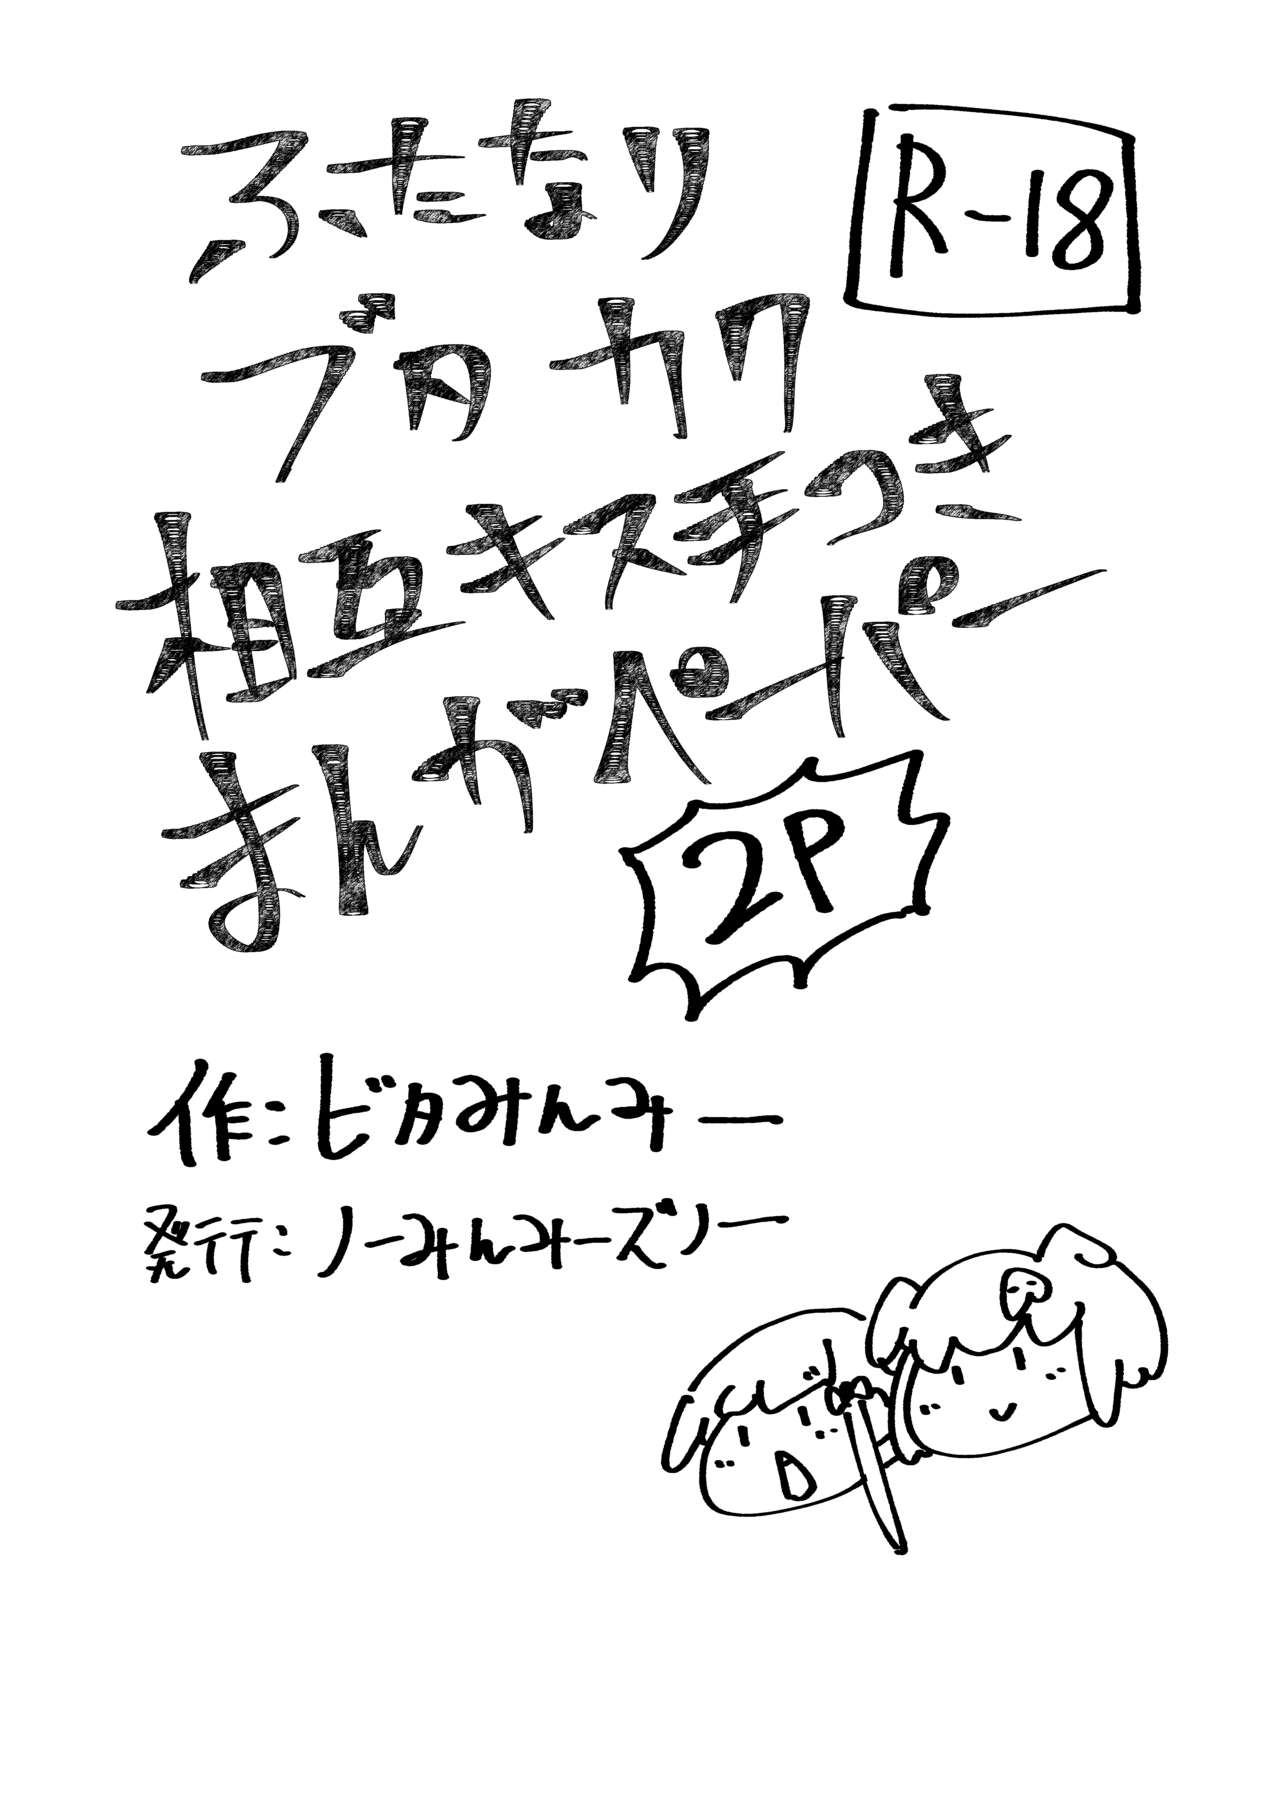 ふたなり
R-18
ブタカク
相互キス手つき
まんがペーパー
2P
作:ビタみんみー
発行:ノーみんみーズソー